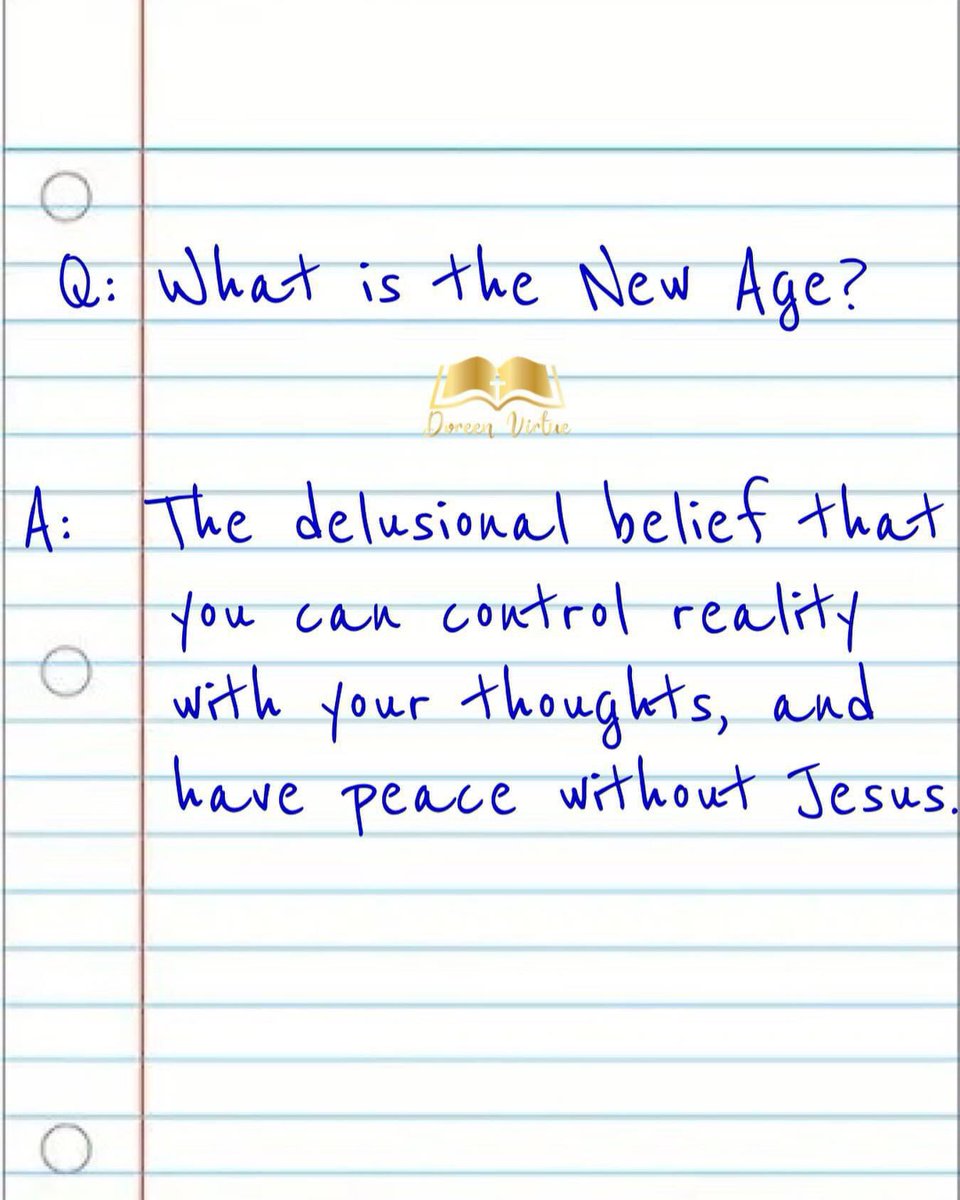 Q: What is the New Age?
Doreen Virtue
A: The delusional belief that
you can control reality
with your thoughts, and
have peace without Jesus.